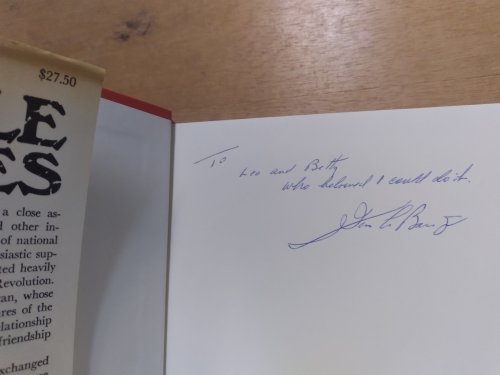 $27.50
LE
ES
a close as-
d other in-
of national
siastic sup-
ted heavily
Revolution.
an, whose
res of the
lationship
friendship
xchanged
To
Leo and Betty
who believed I could do it.